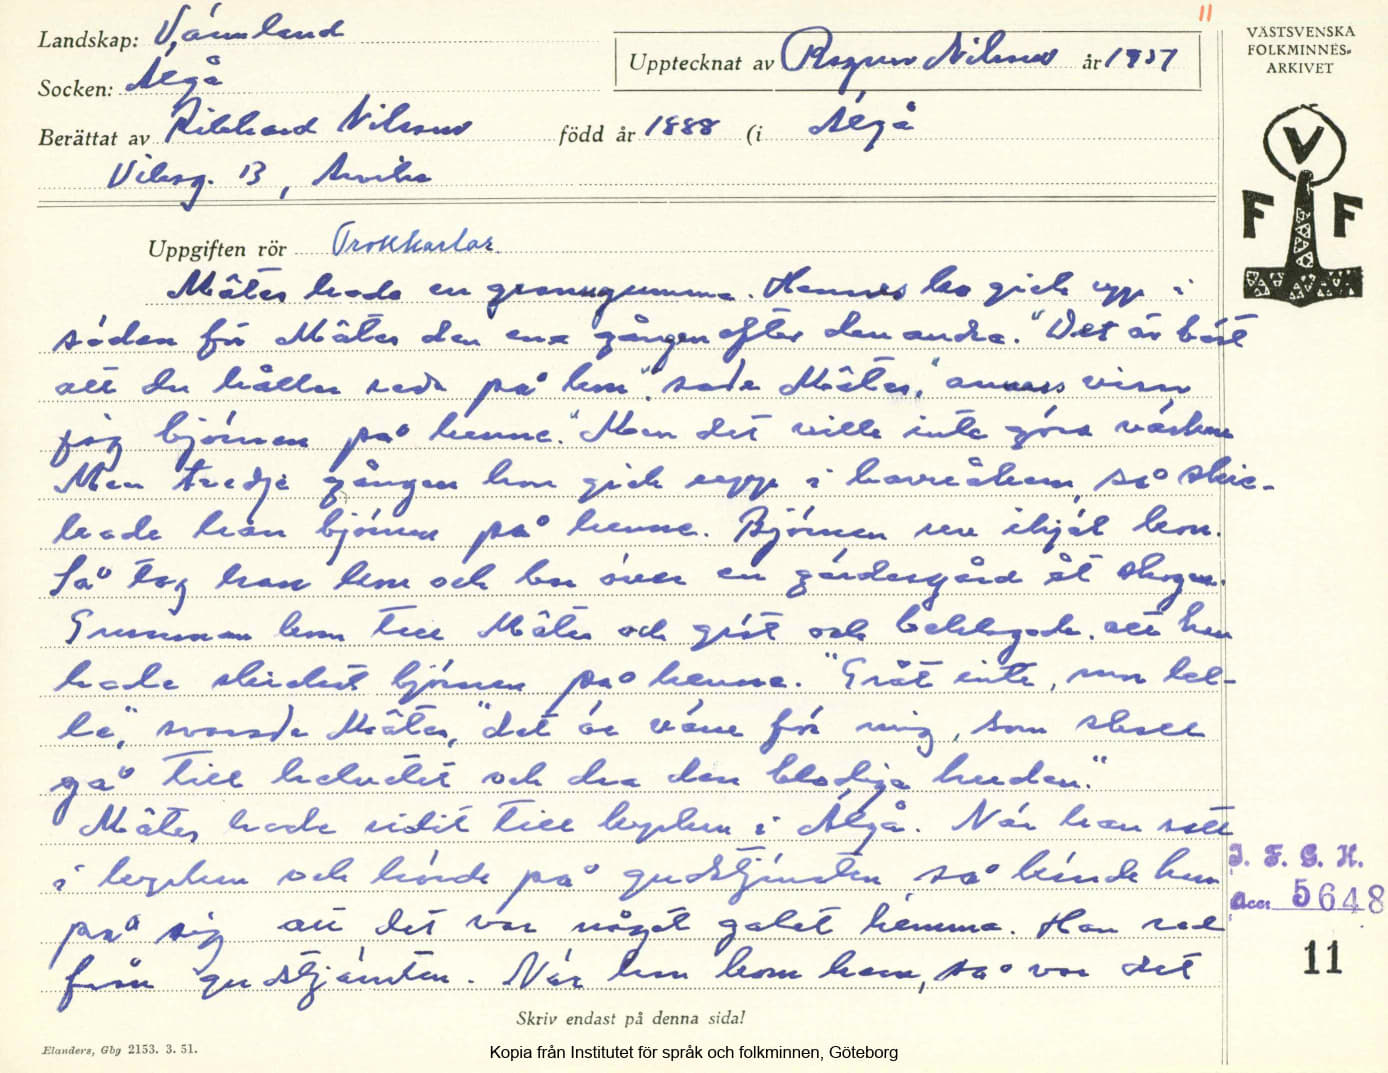 11
Landskap: Värmland
Socken: Älgå
Upptecknat av Ragnar Nilsson år 1957
Berättat av Rikhard Nilsson född år 1888 (i Älgå
Viksg. 13, Arvika
VÄSTSVENSKA
FOLKMINNES-
ARKIVET
V
F F
Uppgiften rör Trollkarlar.
Mâtes hade en granngumma. Hennes ko gick upp i
säden för Mâtes den ena gången efter den andra. "Det är bäst
att du håller reda på kon", sade Mâtes, "annars visar
jag björnen på henne." Men det ville inte göra världen
Men tredje gången kon gick upp i havreåkern, så skic-
kade han björnen på henne. Björnen rev ihjäl kon.
Så tog han kon och bar över en gärdesgård åt skogen.
Gumman kom till Mâtes och gröt och beklagade, att han
hade skickat björnen på henne. "Gråt inte, mor lel-
la", svarade Mâtes, "det är värre för mig, som skall
gå till helvetet och dra den blodiga huden."
Mâtes hade ridit till kyrkan i Älgå. När han satt
i kyrkan och hörde på gudstjänsten, så kände han
på sig att det var något galet hemma. Han red
från gudstjänsten. När han kom hem, så var det
I. F. G. H.
Acc: 5648
11
Skriv endast på denna sida!
Elanders, Gbg 2153. 3. 51.
Kopia från Institutet för språk och folkminnen, Göteborg